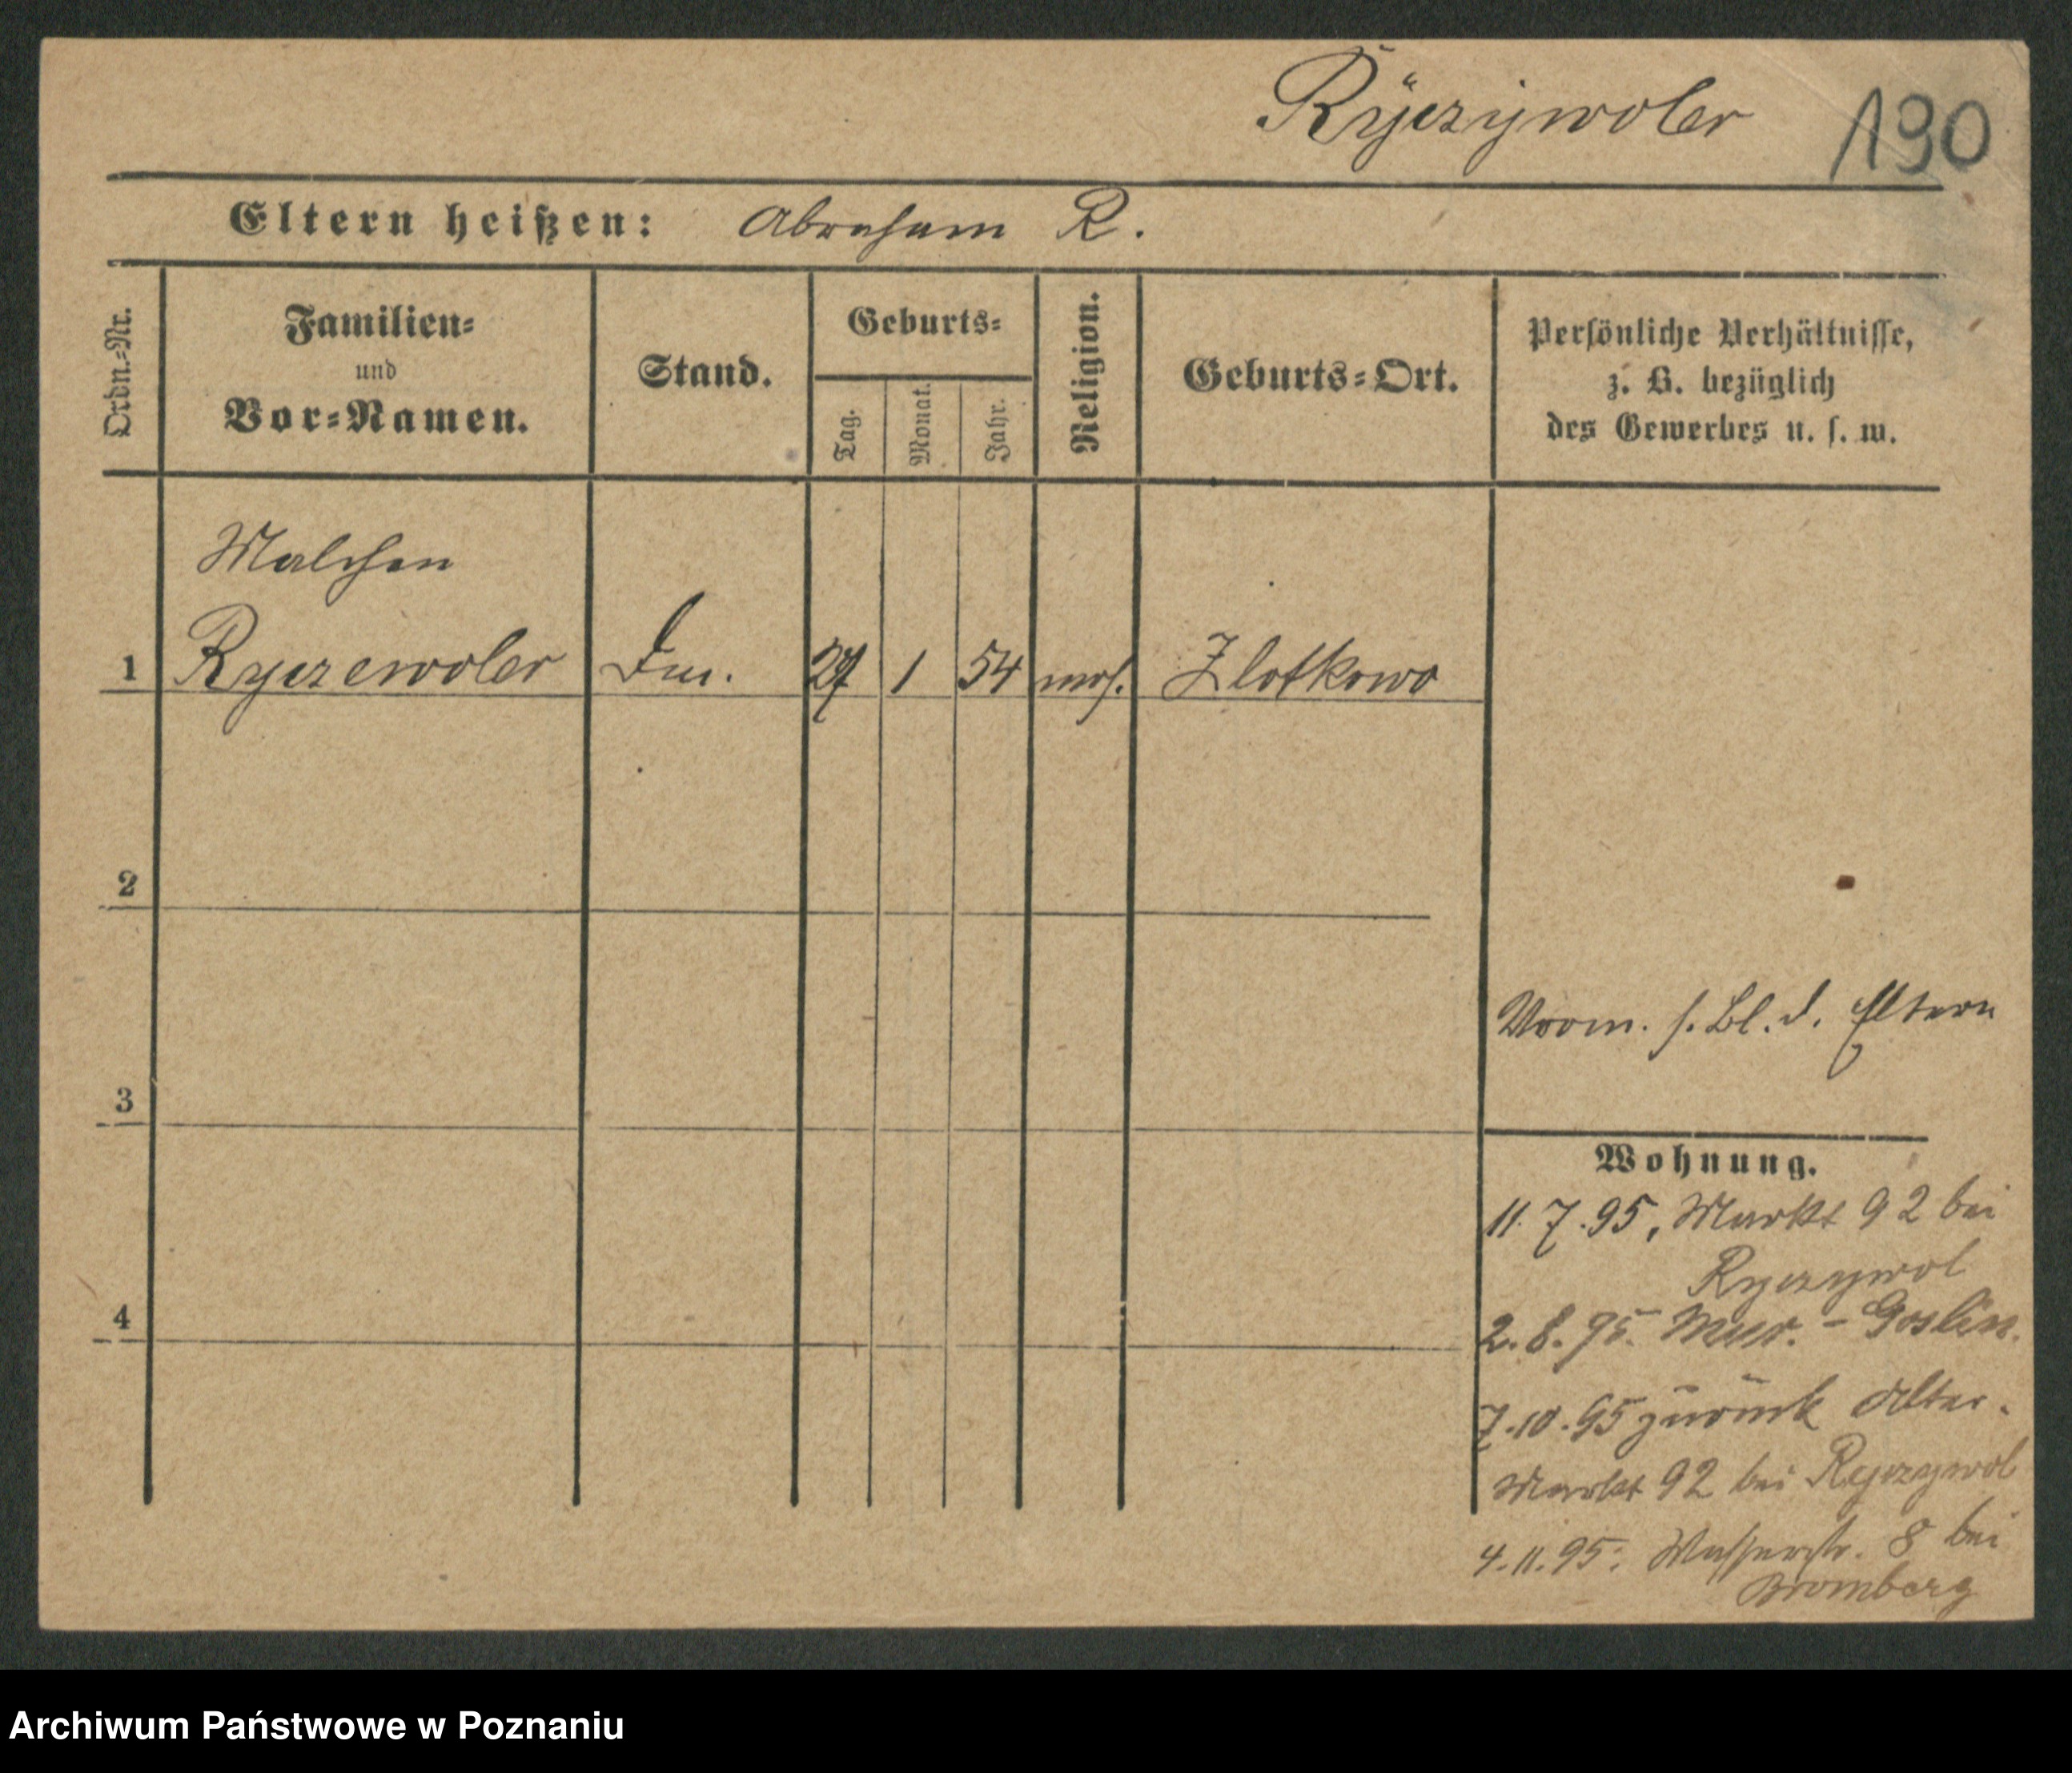 Ryczywoler 190
Eltern heißen: Abraham R.
Ordn.-Nr.
Familien-
und
Vor-Namen.
Stand.
Geburts-
Tag.
Monat.
Jahr.
Religion.
Geburts-Ort.
Persönliche Verhältnisse,
z. B. bezüglich
des Gewerbes u. s. w.
Malchen
1 Ryczewoler 27 1 54 mos. Zlotkowo
2
3
4
Vorm. s. Bl. d. Eltern
Wohnung.
11.7.95, Markt 92 bei
Ryczywol
2.8.95. Mur.-Goslin.
7.10.95 zurück Alter-
Markt 92 bei Ryczywol
4.11.95: Wasserstr. 8 bei
Bromberg
Archiwum Państwowe w Poznaniu